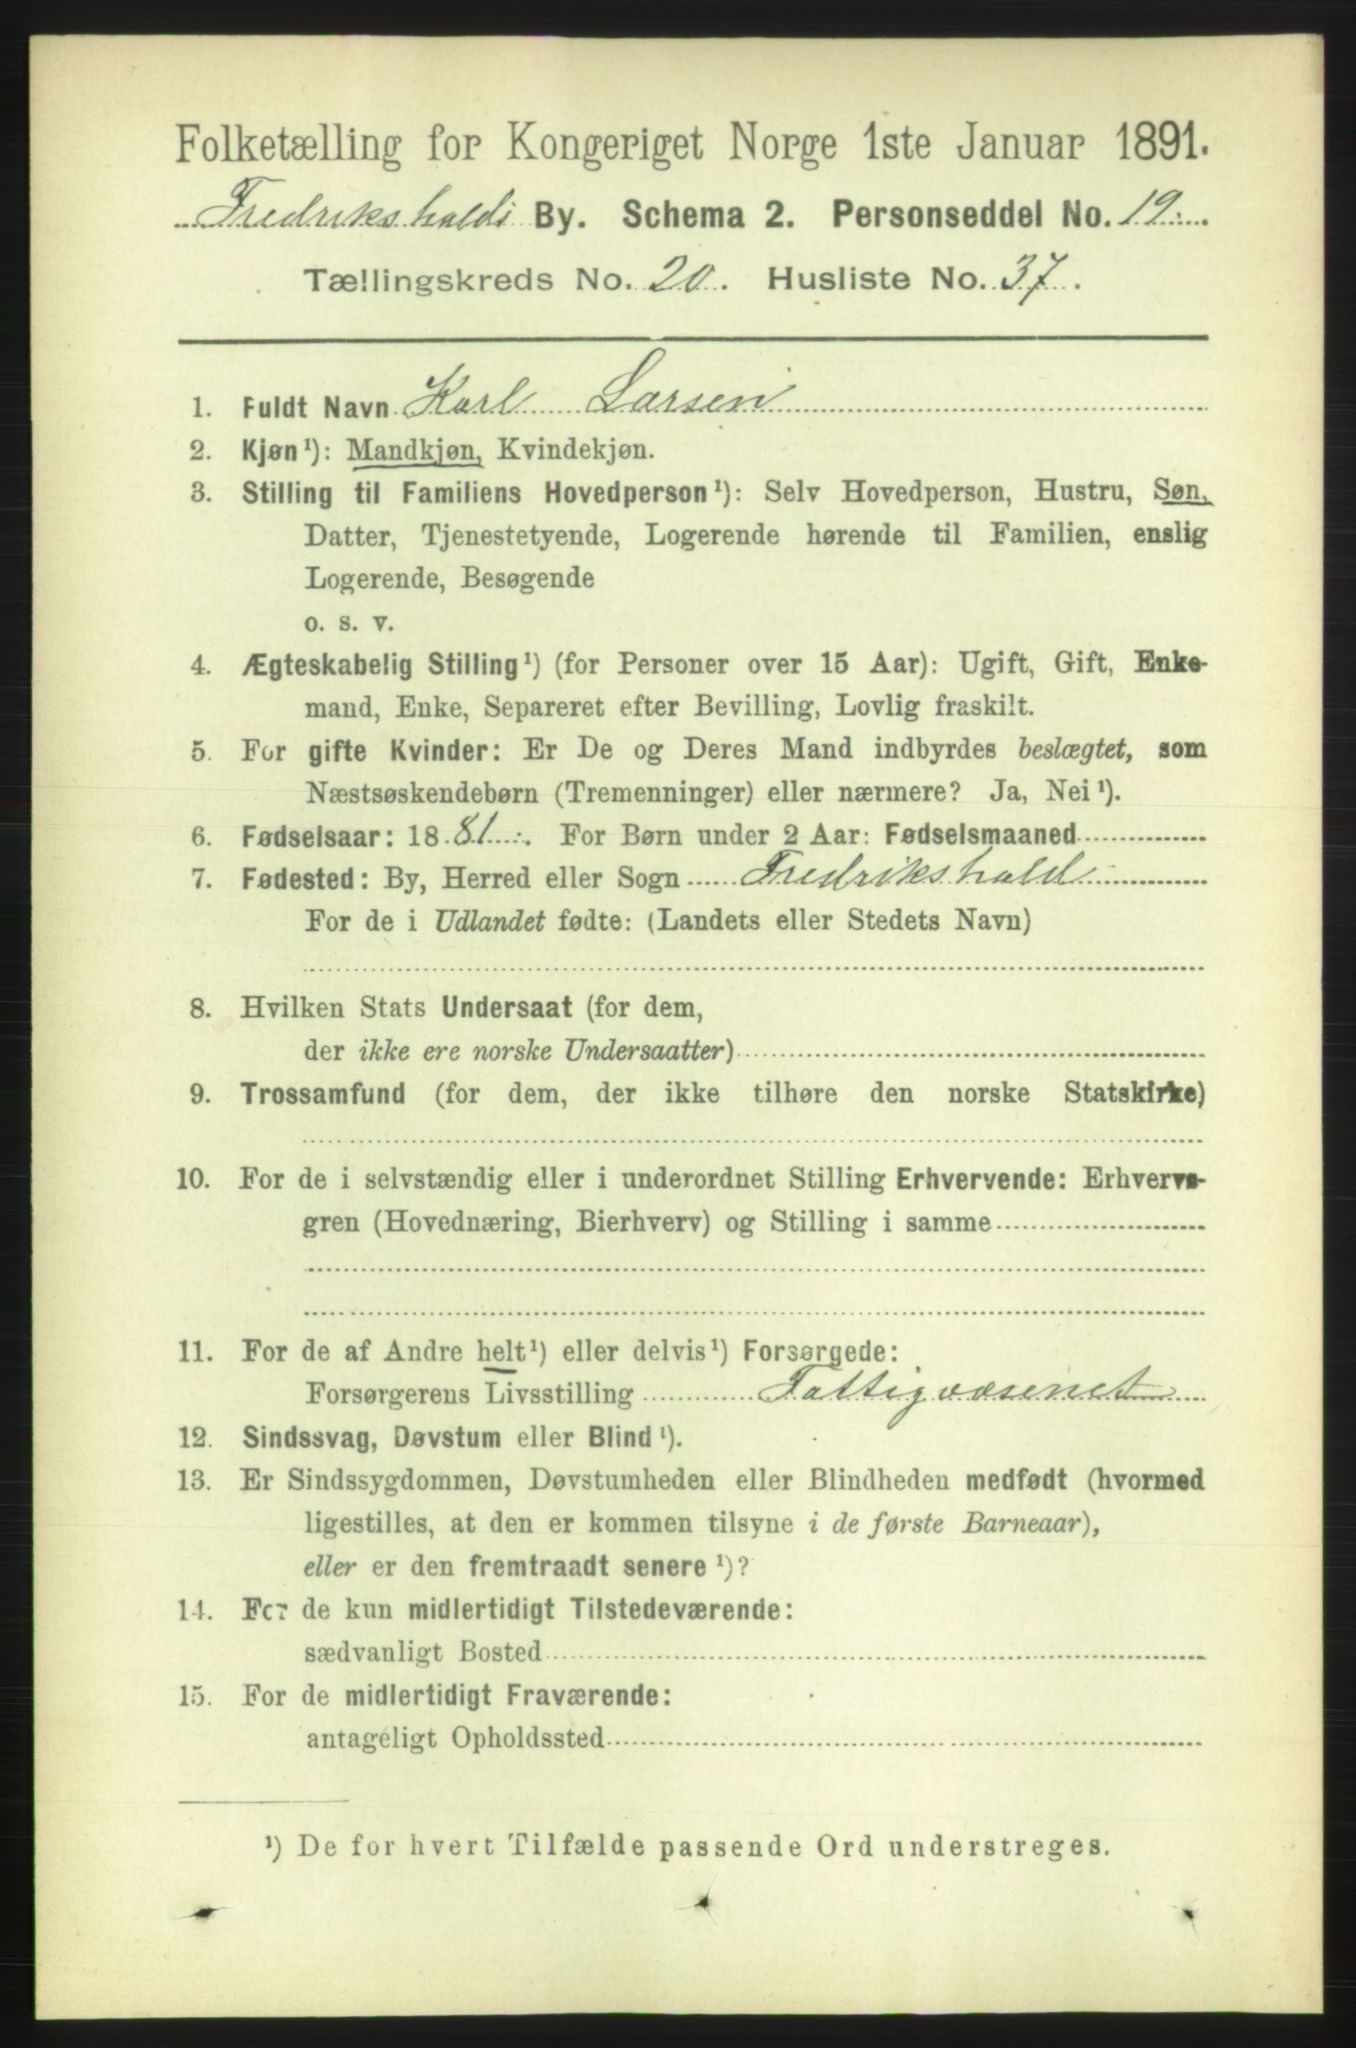 Folketælling for Kongeriget Norge 1ste Januar 1891.
Fredrikshalds By. Schema 2. Personseddel No. 19.
Tællingskreds No. 20. Husliste No. 37.
1. Fuldt Navn Karl Larsen
2. Kjøn¹): Mandkjøn, Kvindekjøn.
3. Stilling til Familiens Hovedperson¹): Selv Hovedperson, Hustru, Søn,
Datter, Tjenestetyende, Logerende hørende til Familien, enslig
Logerende, Besøgende
o. s. v.
4. Ægteskabelig Stilling¹) (for Personer over 15 Aar): Ugift, Gift, Enke-
mand, Enke, Separeret efter Bevilling, Lovlig fraskilt.
5. For gifte Kvinder: Er De og Deres Mand indbyrdes beslægtet, som
Næstsøskendebørn (Tremenninger) eller nærmere? Ja, Nei¹).
6. Fødselsaar: 1881. For Børn under 2 Aar: Fødselsmaaned
7. Fødested: By, Herred eller Sogn Fredrikshald
For de i Udlandet fødte: (Landets eller Stedets Navn)
8. Hvilken Stats Undersaat (for dem,
der ikke ere norske Undersaatter)
9. Trossamfund (for dem, der ikke tilhøre den norske Statskirke)
10. For de i selvstændig eller i underordnet Stilling Erhvervende: Erhvervs-
gren (Hovednæring, Bierhverv) og Stilling i samme
11. For de af Andre helt¹) eller delvis¹) Forsørgede:
Forsørgerens Livsstilling Fattigvæsenet
12. Sindssvag, Døvstum eller Blind¹).
13. Er Sindssygdommen, Døvstumheden eller Blindheden medfødt (hvormed
ligestilles, at den er kommen tilsyne i de første Barneaar),
eller er den fremtraadt senere¹)?
14. For de kun midlertidigt Tilstedeværende:
sædvanligt Bosted
15. For de midlertidigt Fraværende:
antageligt Opholdssted
¹) De for hvert Tilfælde passende Ord understreges.